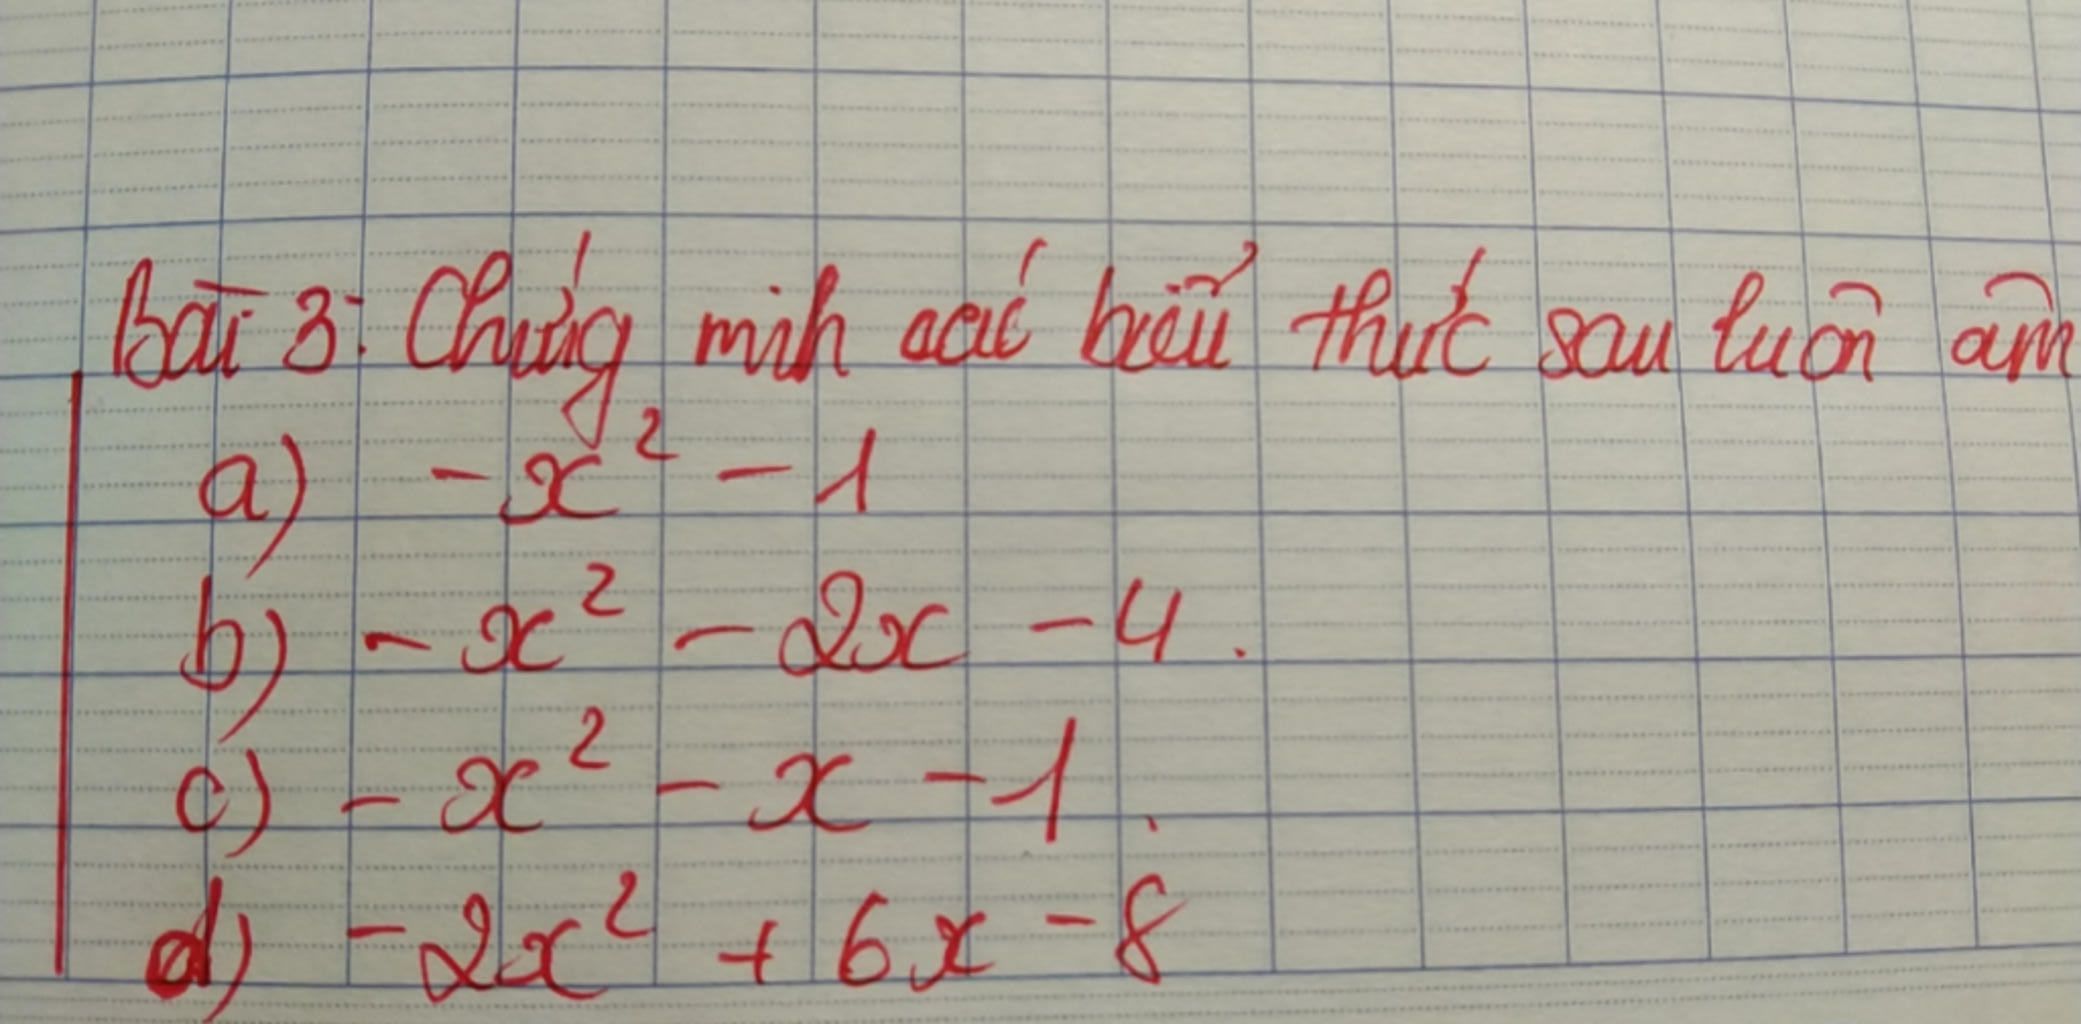 Bài 3: Chứng minh các biểu thức sau luôn âm
a) -x² - 1
b) -x² - 2x - 4.
c) -x² - x - 1.
d) -2x² + 6x - 8